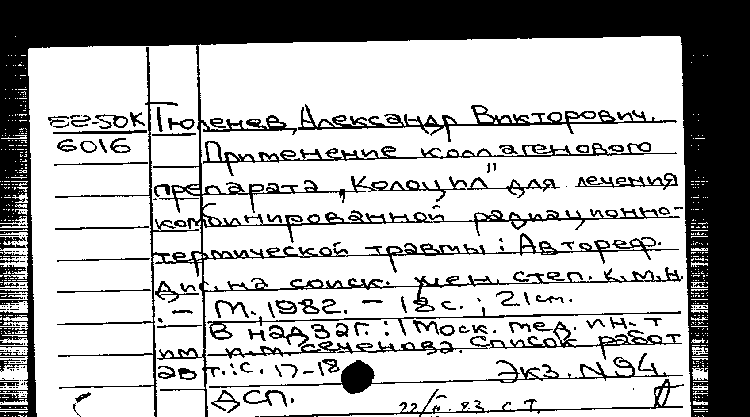 Тюленев, Александр Викторович.
6016
Применение коллагенового
препарата „Колоцил" для лечения
комбинированной радиационно-
термической травмы : Автореф.
Дис. на соиск. учен. степ. к.м.н.
. - М., 1982. - 18 с. ; 21 см.
В надзаг. : 1 Моск. мед. ин-т
им. И.М. Сеченова. Список работ
авт.: с. 17-18
Экз. N 94.
ДСП.